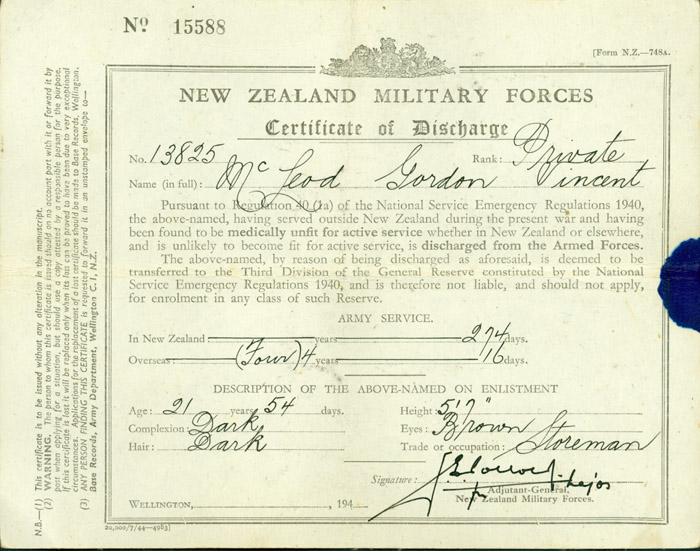 Nº 15588
[Form N.Z.—748A.
NEW ZEALAND MILITARY FORCES
Certificate of Discharge
No. 13825 Rank: Private
Name (in full): McLeod Gordon Vincent
Pursuant to Regulation 40 (1a) of the National Service Emergency Regulations 1940,
the above-named, having served outside New Zealand during the present war and having
been found to be medically unfit for active service whether in New Zealand or elsewhere,
and is unlikely to become fit for active service, is discharged from the Armed Forces.
The above-named, by reason of being discharged as aforesaid, is deemed to be
transferred to the Third Division of the General Reserve constituted by the National
Service Emergency Regulations 1940, and is therefore not liable, and should not apply,
for enrolment in any class of such Reserve.
ARMY SERVICE.
In New Zealand years 274 days.
Overseas: (Four) 4 years 16 days.
DESCRIPTION OF THE ABOVE-NAMED ON ENLISTMENT
Age: 21 years 54 days. Height: 5'7"
Complexion: Dark Eyes: Brown
Hair: Dark Trade or occupation: Storeman
Signature: Major
Adjutant-General,
New Zealand Military Forces.
WELLINGTON, , 194
20,000/7/44—4983]
N.B.—(1) This certificate is to be issued without any alteration in the manuscript.
(2) WARNING. The person to whom this certificate is issued should on no account part with it or forward it by
post when applying for a situation, but should use a copy attested by a responsible person for the purpose.
If this certificate is lost it will be replaced only when its loss can be proved to have been due to very exceptional
circumstances. Applications for the replacement of a lost certificate should be made to Base Records, Wellington.
(3) ANY PERSON FINDING THIS CERTIFICATE is requested to forward it in an unstamped envelope to—
Base Records, Army Department, Wellington C.1, N.Z.